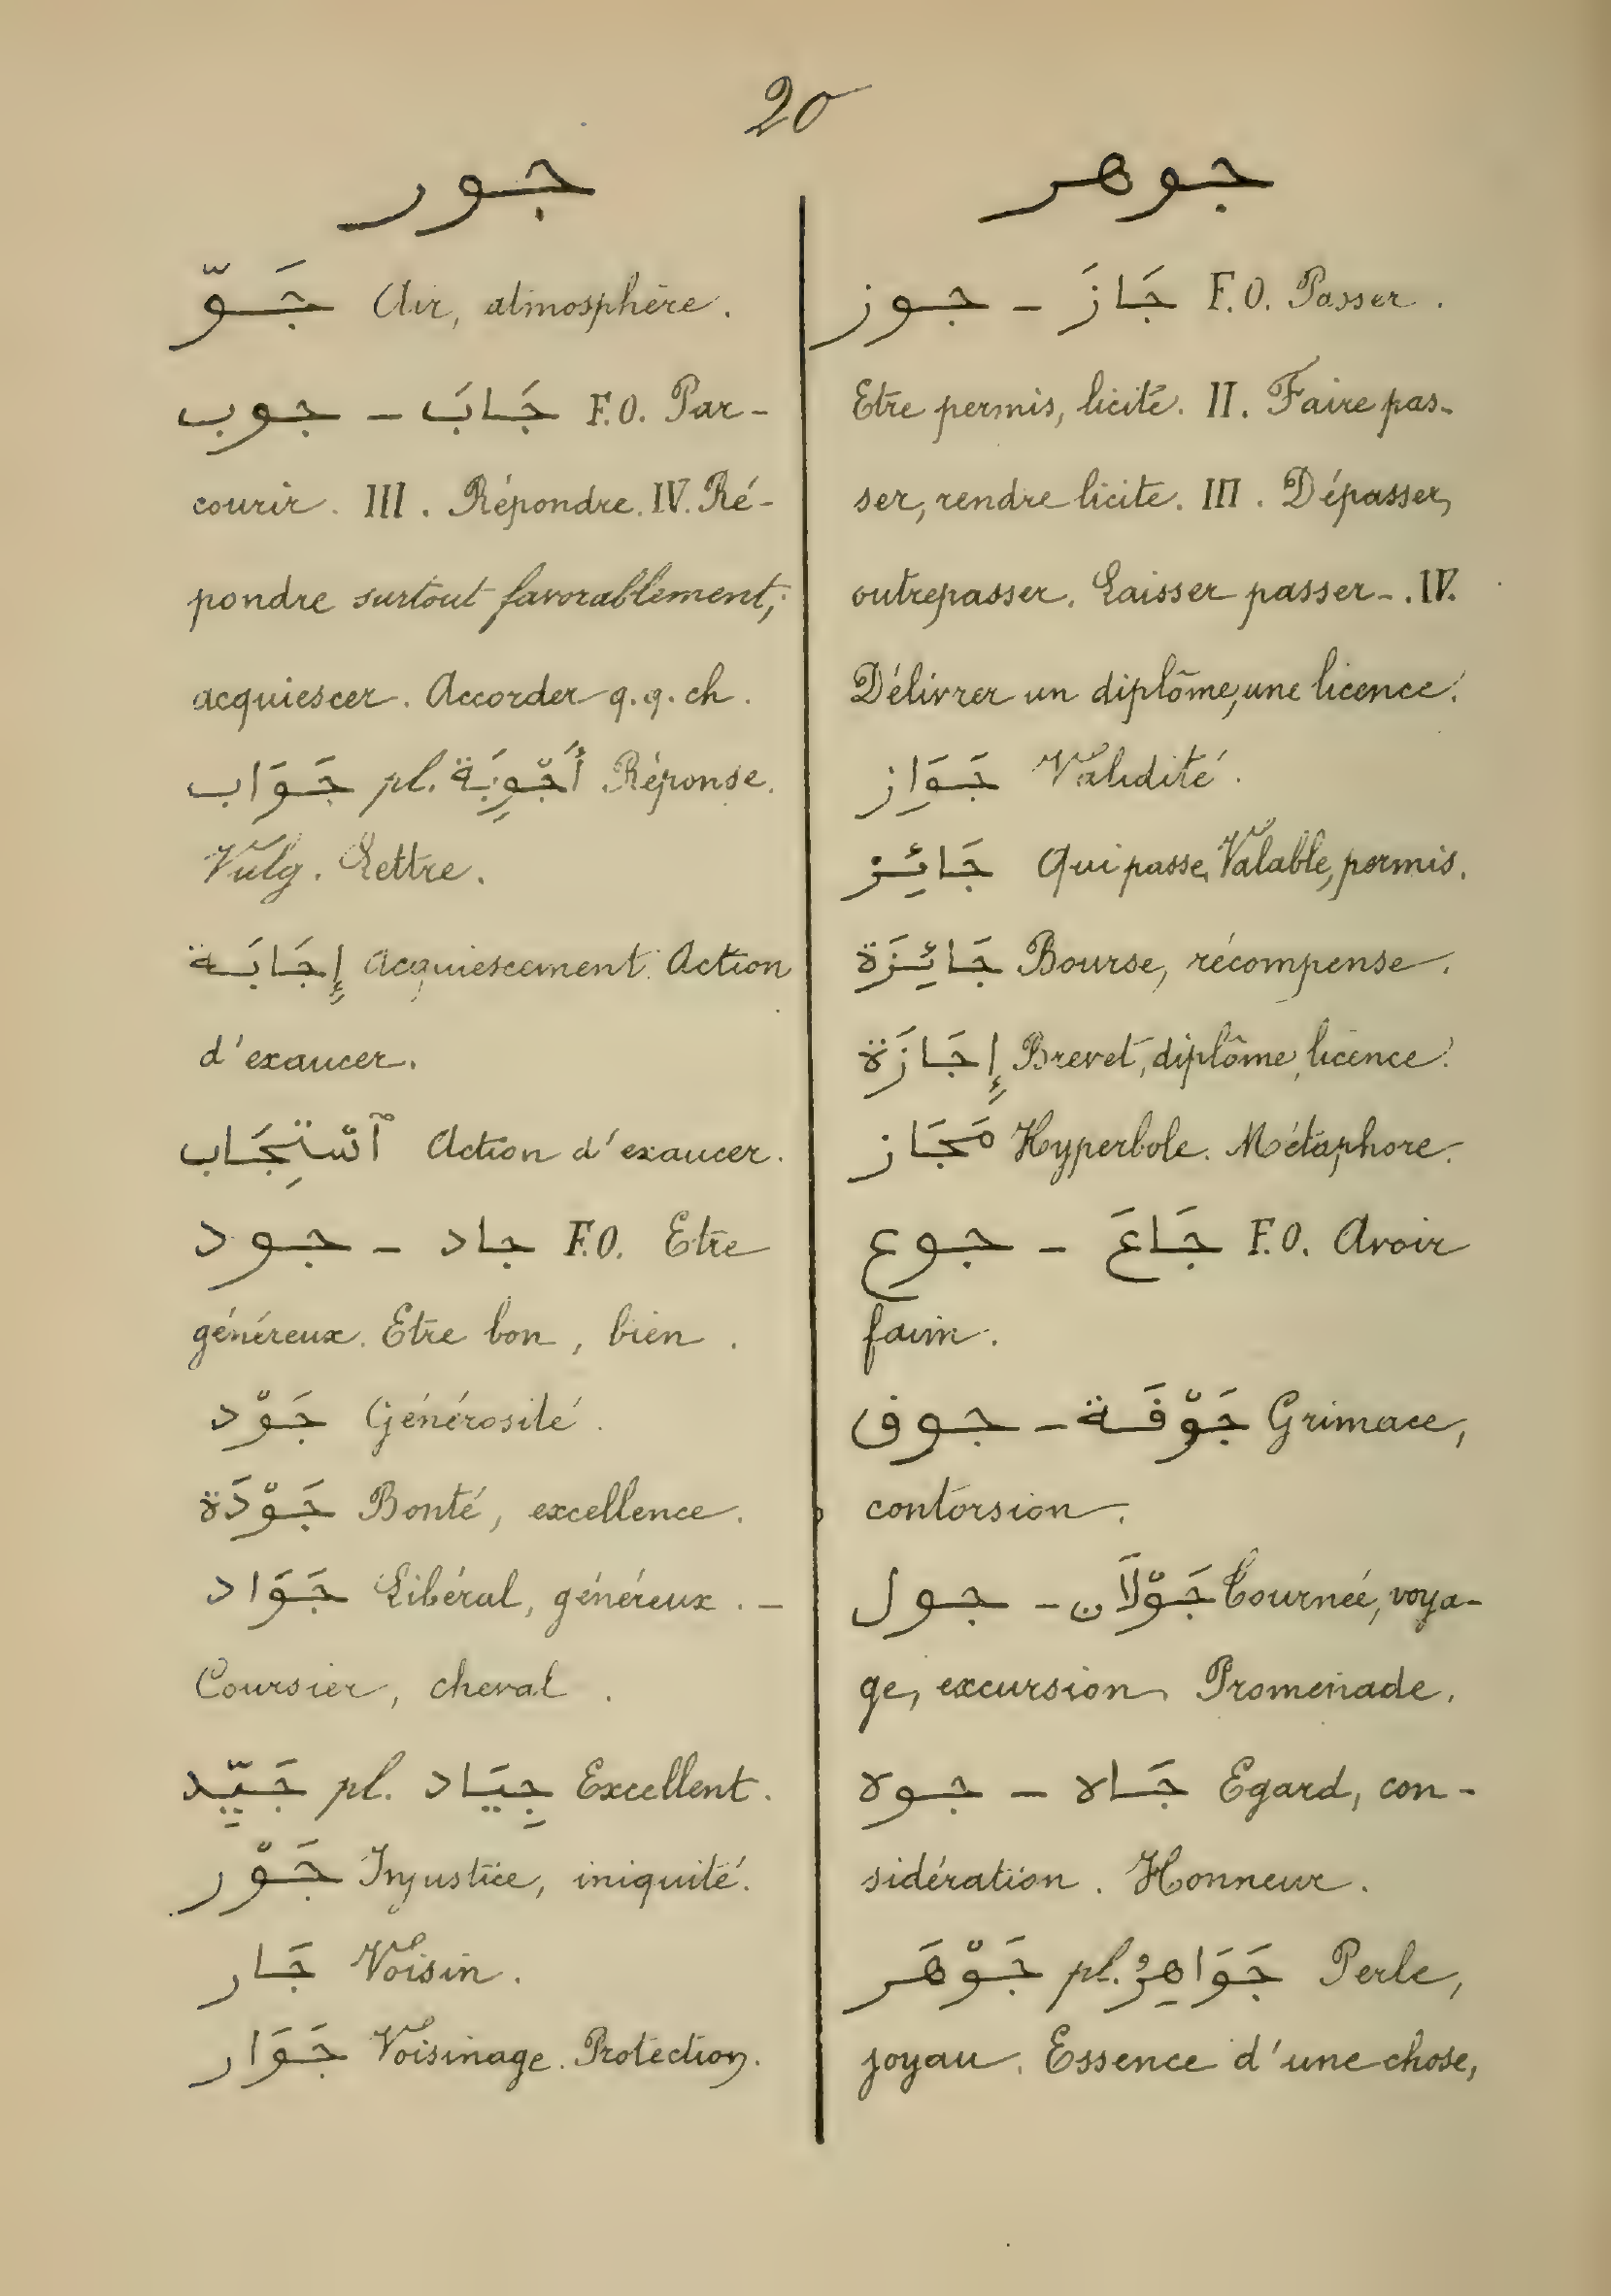 20
جور
جَوّ Air, atmosphère.
جوب – جَابَ F.O. Par-
courir. III. Répondre. IV. Ré-
pondre surtout favorablement;
acquiescer. Accorder q.q. ch.
جَوَاب pl. أَجْوِبَة Réponse.
Vulg. Lettre.
إِجَابَة Acquiescement. Action
d'exaucer.
ٱسْتِجَاب Action d'exaucer.
جود – جاد F.O. Etre
généreux. Etre bon, bien.
جَوْد Générosité.
جَوْدَة Bonté, excellence.
جَوَاد Libéral, généreux. –
Coursier, cheval.
جَيِّد pl. جِيَاد Excellent.
جَوْر Injustice, iniquité.
جَار Voisin.
جَوَار Voisinage. Protection.
جوهر
جوز – جَازَ F.O. Passer.
Etre permis, licite. II. Faire pas-
ser, rendre licite. III. Dépasser,
outrepasser. Laisser passer-. IV.
Délivrer un diplôme, une licence.
جَوَاِز Validité.
جَائِز Qui passe, Valable, permis.
جَائِزَة Bourse, récompense.
إِجَازَة Brevet, diplôme, licence.
مَجَاز Hyperbole. Métaphore.
جوع – جَاعَ F.O. Avoir
faim.
جوف – جَوْفَة Grimace,
contorsion.
جول – جَوْلَان Tournée, voya-
ge, excursion, Promenade.
جوه – جَاه Egard, con-
sidération. Honneur.
جَوْهَر pl. جَوَاهِرُ Perle,
joyau. Essence d'une chose,